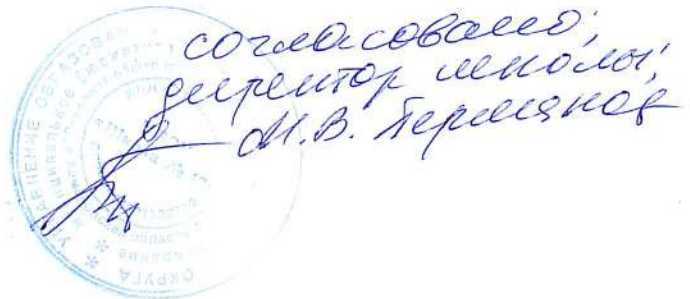 согласовано;
директор школы;
М.В. Пермяков
УПРАВЛЕНИЕ ОБРАЗОВА
ОКРУГА